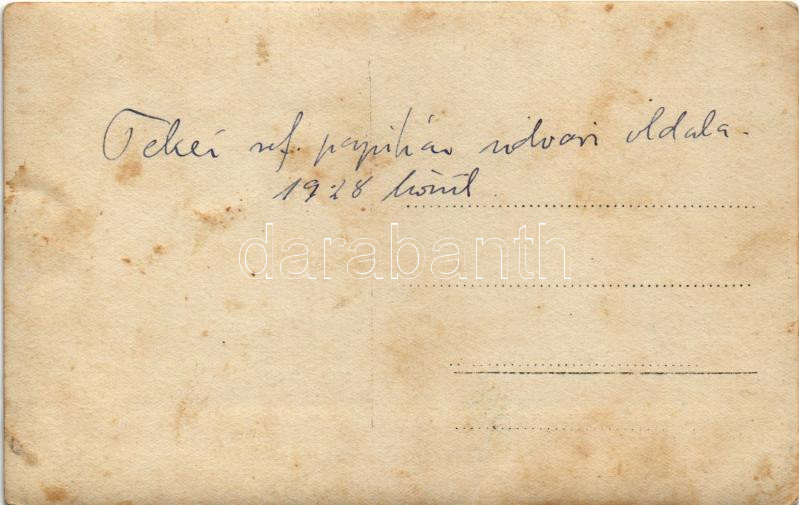 Tekei ref. papilak udvari oldala.
1928 körül.
darabanth